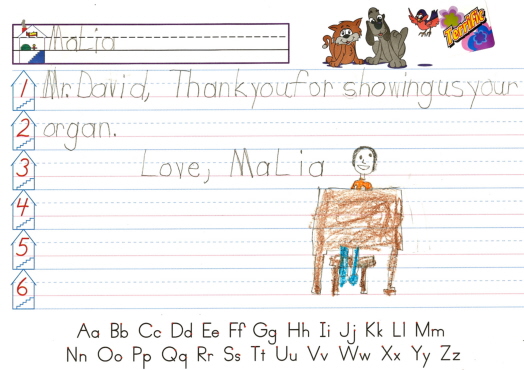 MaLia
Terrific
1 Mr. David, Thank you for showing us your
2 organ.
3 Love, MaLia
4
5
6
Aa Bb Cc Dd Ee Ff Gg Hh Ii Jj Kk Ll Mm
Nn Oo Pp Qq Rr Ss Tt Uu Vv Ww Xx Yy Zz